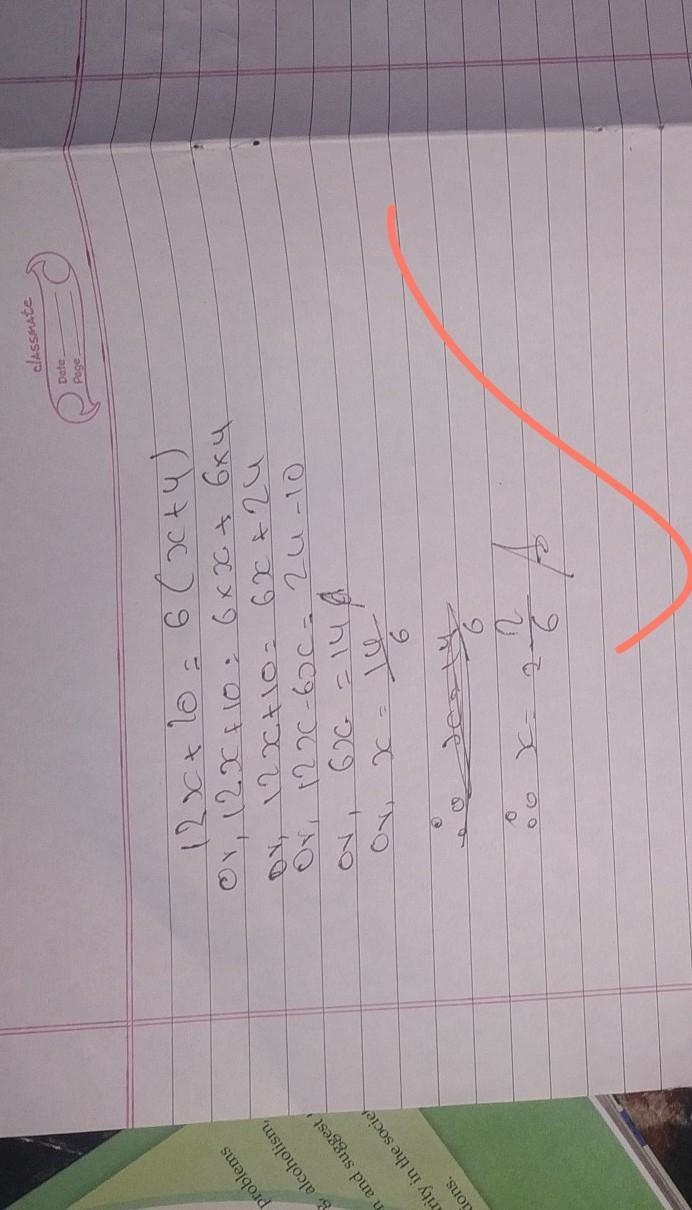 classmate
Date
Page
12x + 10 = 6 (x + 4)
Or, 12x + 10 = 6 × x + 6 × 4
Or, 12x + 10 = 6x + 24
Or, 12x - 6x = 24 - 10
Or, 6x = 14
Or, x = 14/6
∴ x = 2 2/6
problems
g, alcoholism,
n and suggest
rity in the societ
ions.